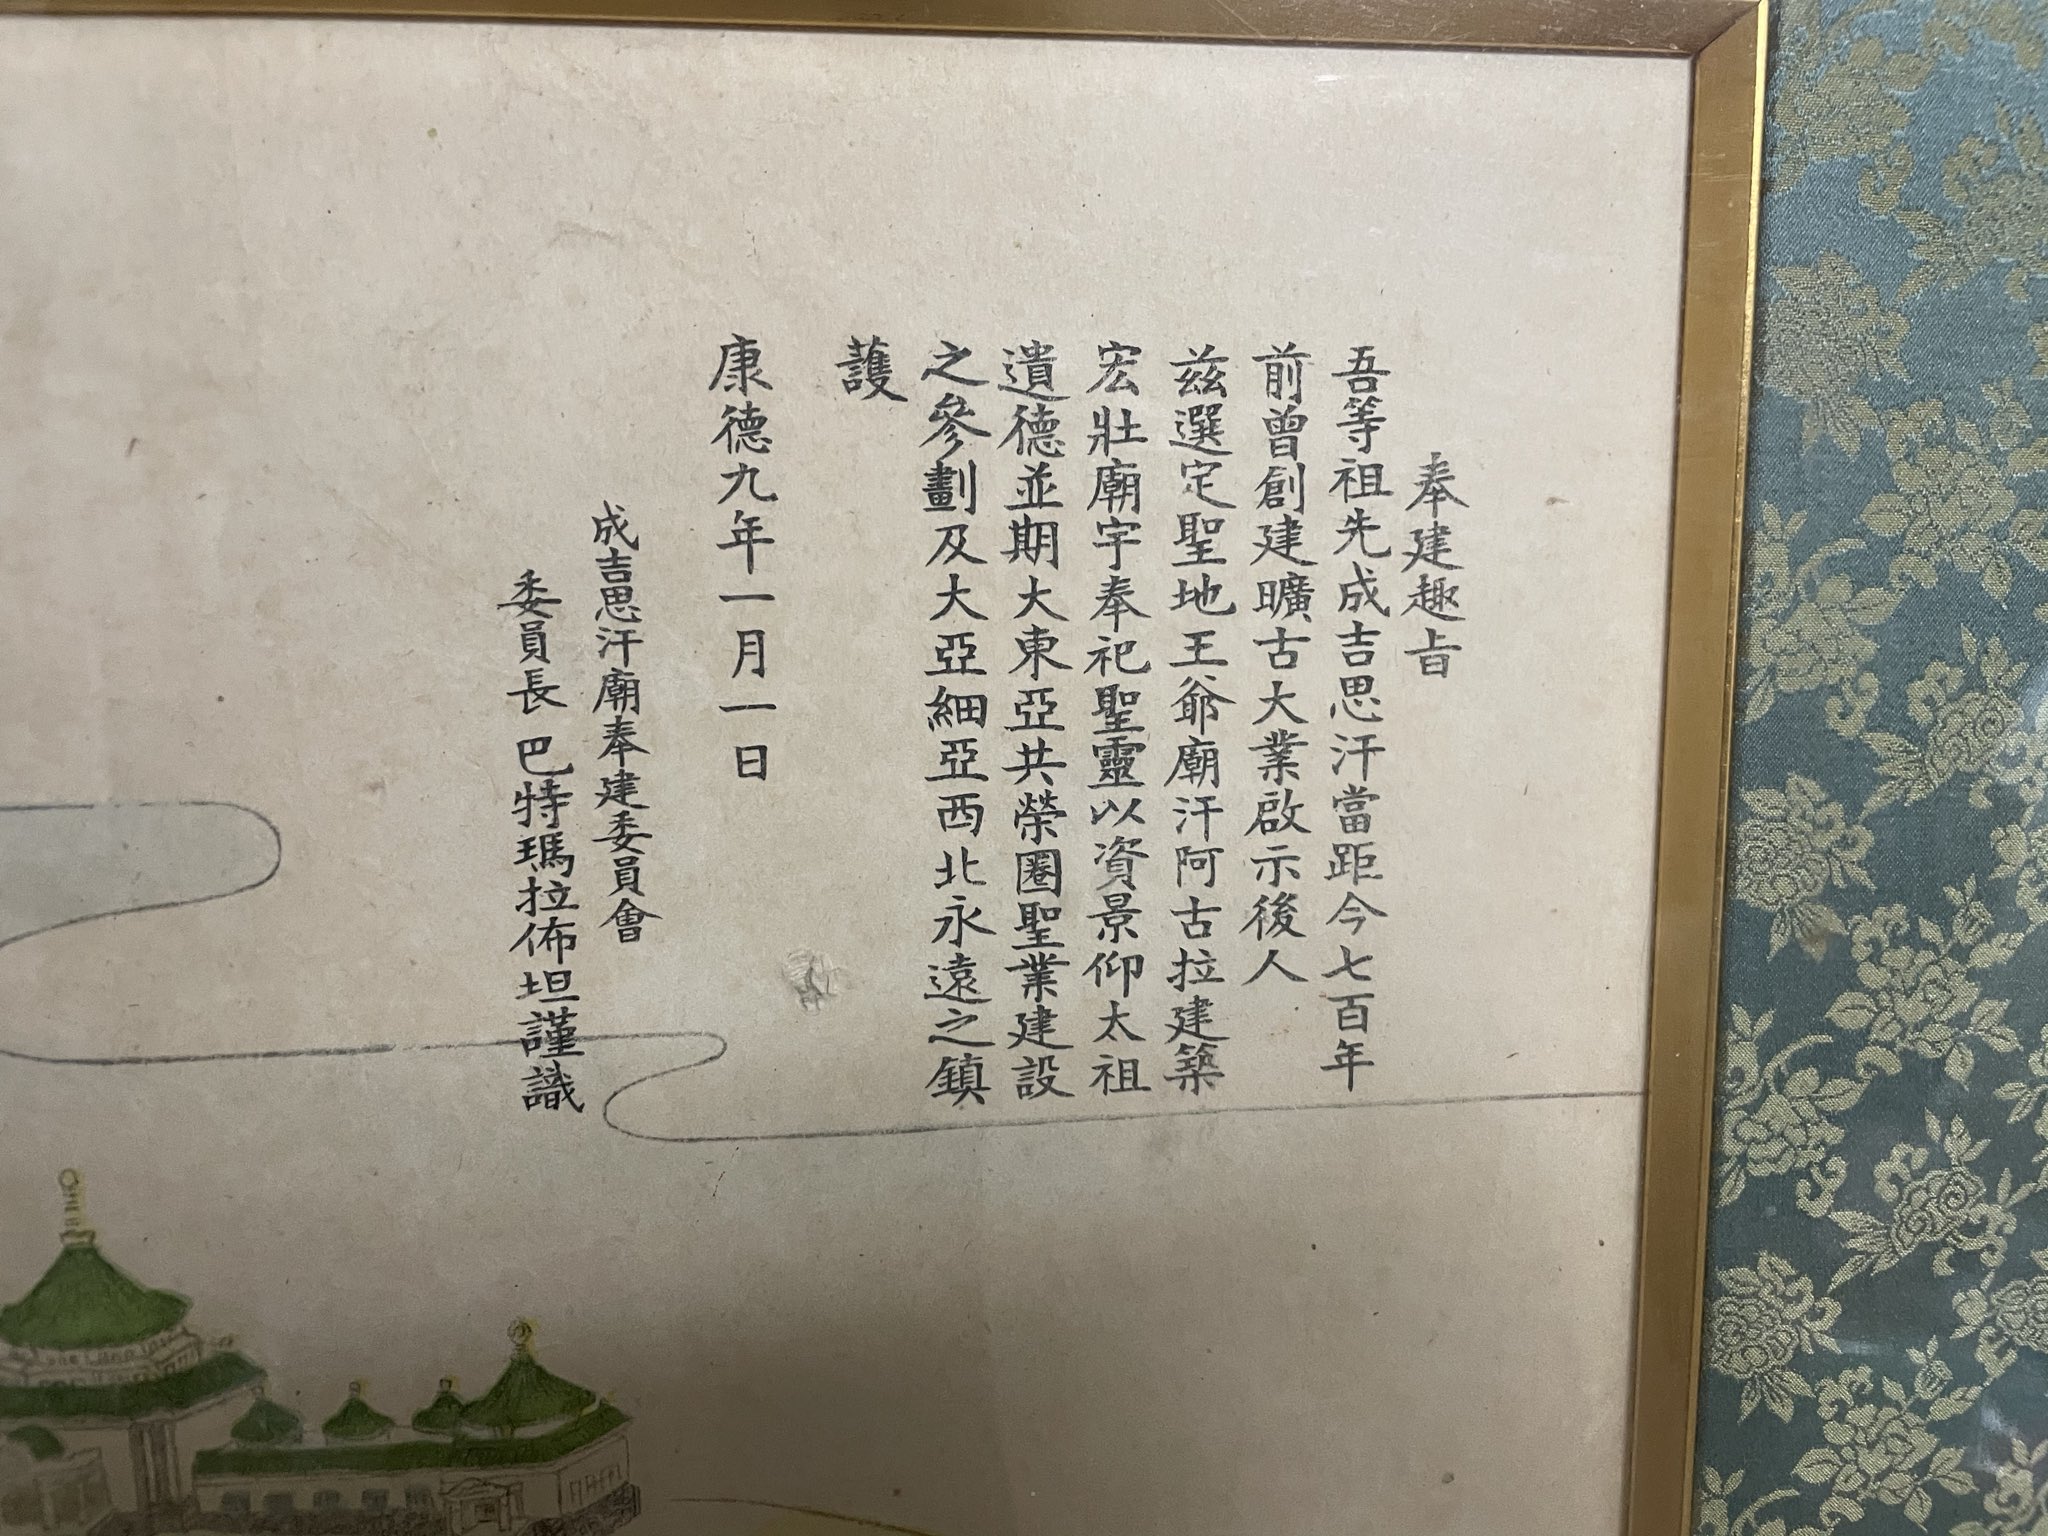 奉建趣旨
吾等祖先成吉思汗當距今七百年
前曾創建曠古大業啟示後人
茲選定聖地王爺廟汗阿古拉建築
宏壯廟宇奉祀聖靈以資景仰太祖
遺德並期大東亞共榮圈聖業建設
之參劃及大亞細亞西北永遠之鎮
護
康德九年一月一日
成吉思汗廟奉建委員會
委員長 巴特瑪拉佈坦謹識